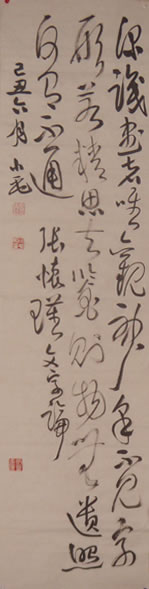 深識書者唯觀神彩不見字
形若精思玄鑒則物無遺照
何有不通 張懷瓘文字論
己丑六月 小